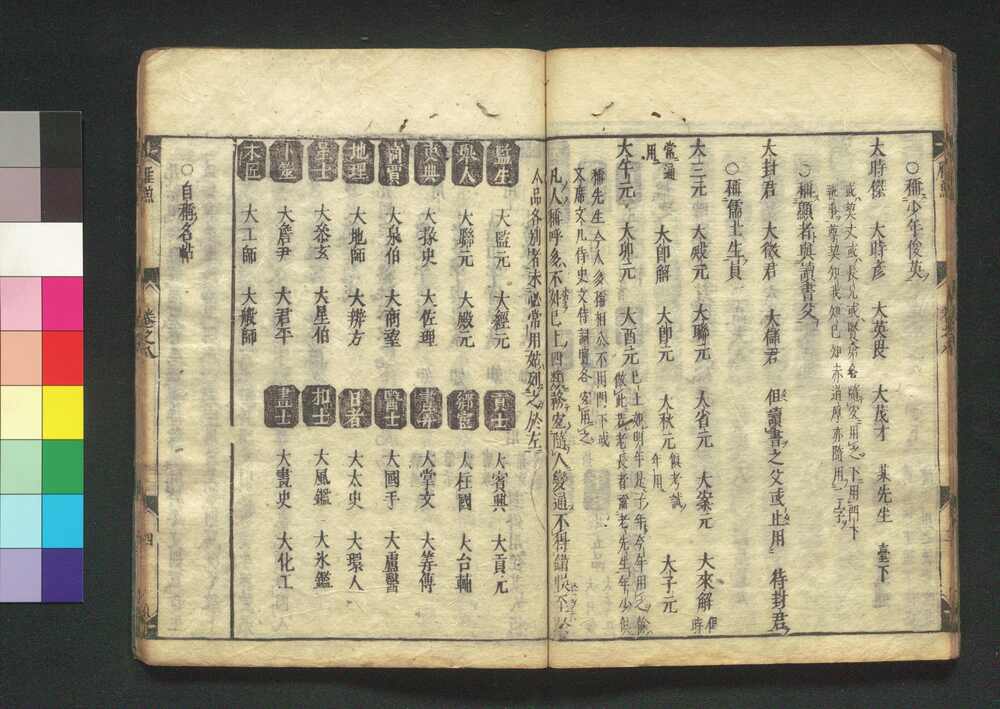 ○稱少年俊英
大時傑 大時彦 大英畏 大茂才 某先生 臺下
或契丈或長兄或賢弟各隨宜用之下用門下
執事尊契知我知己知赤道厚亦隨用
○稱顯者與讀書父
大封君 大徵君 大儒君 但讀書之父或止用 待封君
○稱儒士生員
大三元 大殿元 大聯元 大省元 大案元 大來解 但時
常通用 大卽解 大卽元 大秋元 俱考試年用 大子元
大午元 大卯元 大酉元 已上如明年是子年今年用之餘
做此若老長者當老先生年少但
稱先生今人多稱相公不用門下或
文席文几侍史文侍詞壇各宜用之
凡人稱呼多不如已上四類務宜隨人變通不得錯悞至
人品各別者未必常用姑列之於左
監生 大監元 大經元
貢士 大賓興 大貢元
舉人 大聯元 大殿元
大柱國 大台輔
吏典 大掾史 大佐理
大掌文 大等傳
商賈 大泉伯 大商望
醫士 大國手 大盧醫
地理 大地師 大辨方
日者 大太史 大環人
星士 大參玄 大星伯
扣士 大風鑑 大氷鑑
卜筮 大詹尹 大君平
畫士 大畫史 大化工
木匠 大工師 大般師
○自稱名帖
卷之八
四